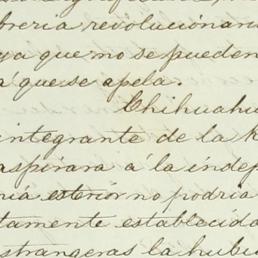 breria revolucionari
ya que no se pueden
á que se apela.
Chihuahu
integrante de la R
aspirara á la indep
ria esterior no podria
tamente establecida
strangeras la hubi